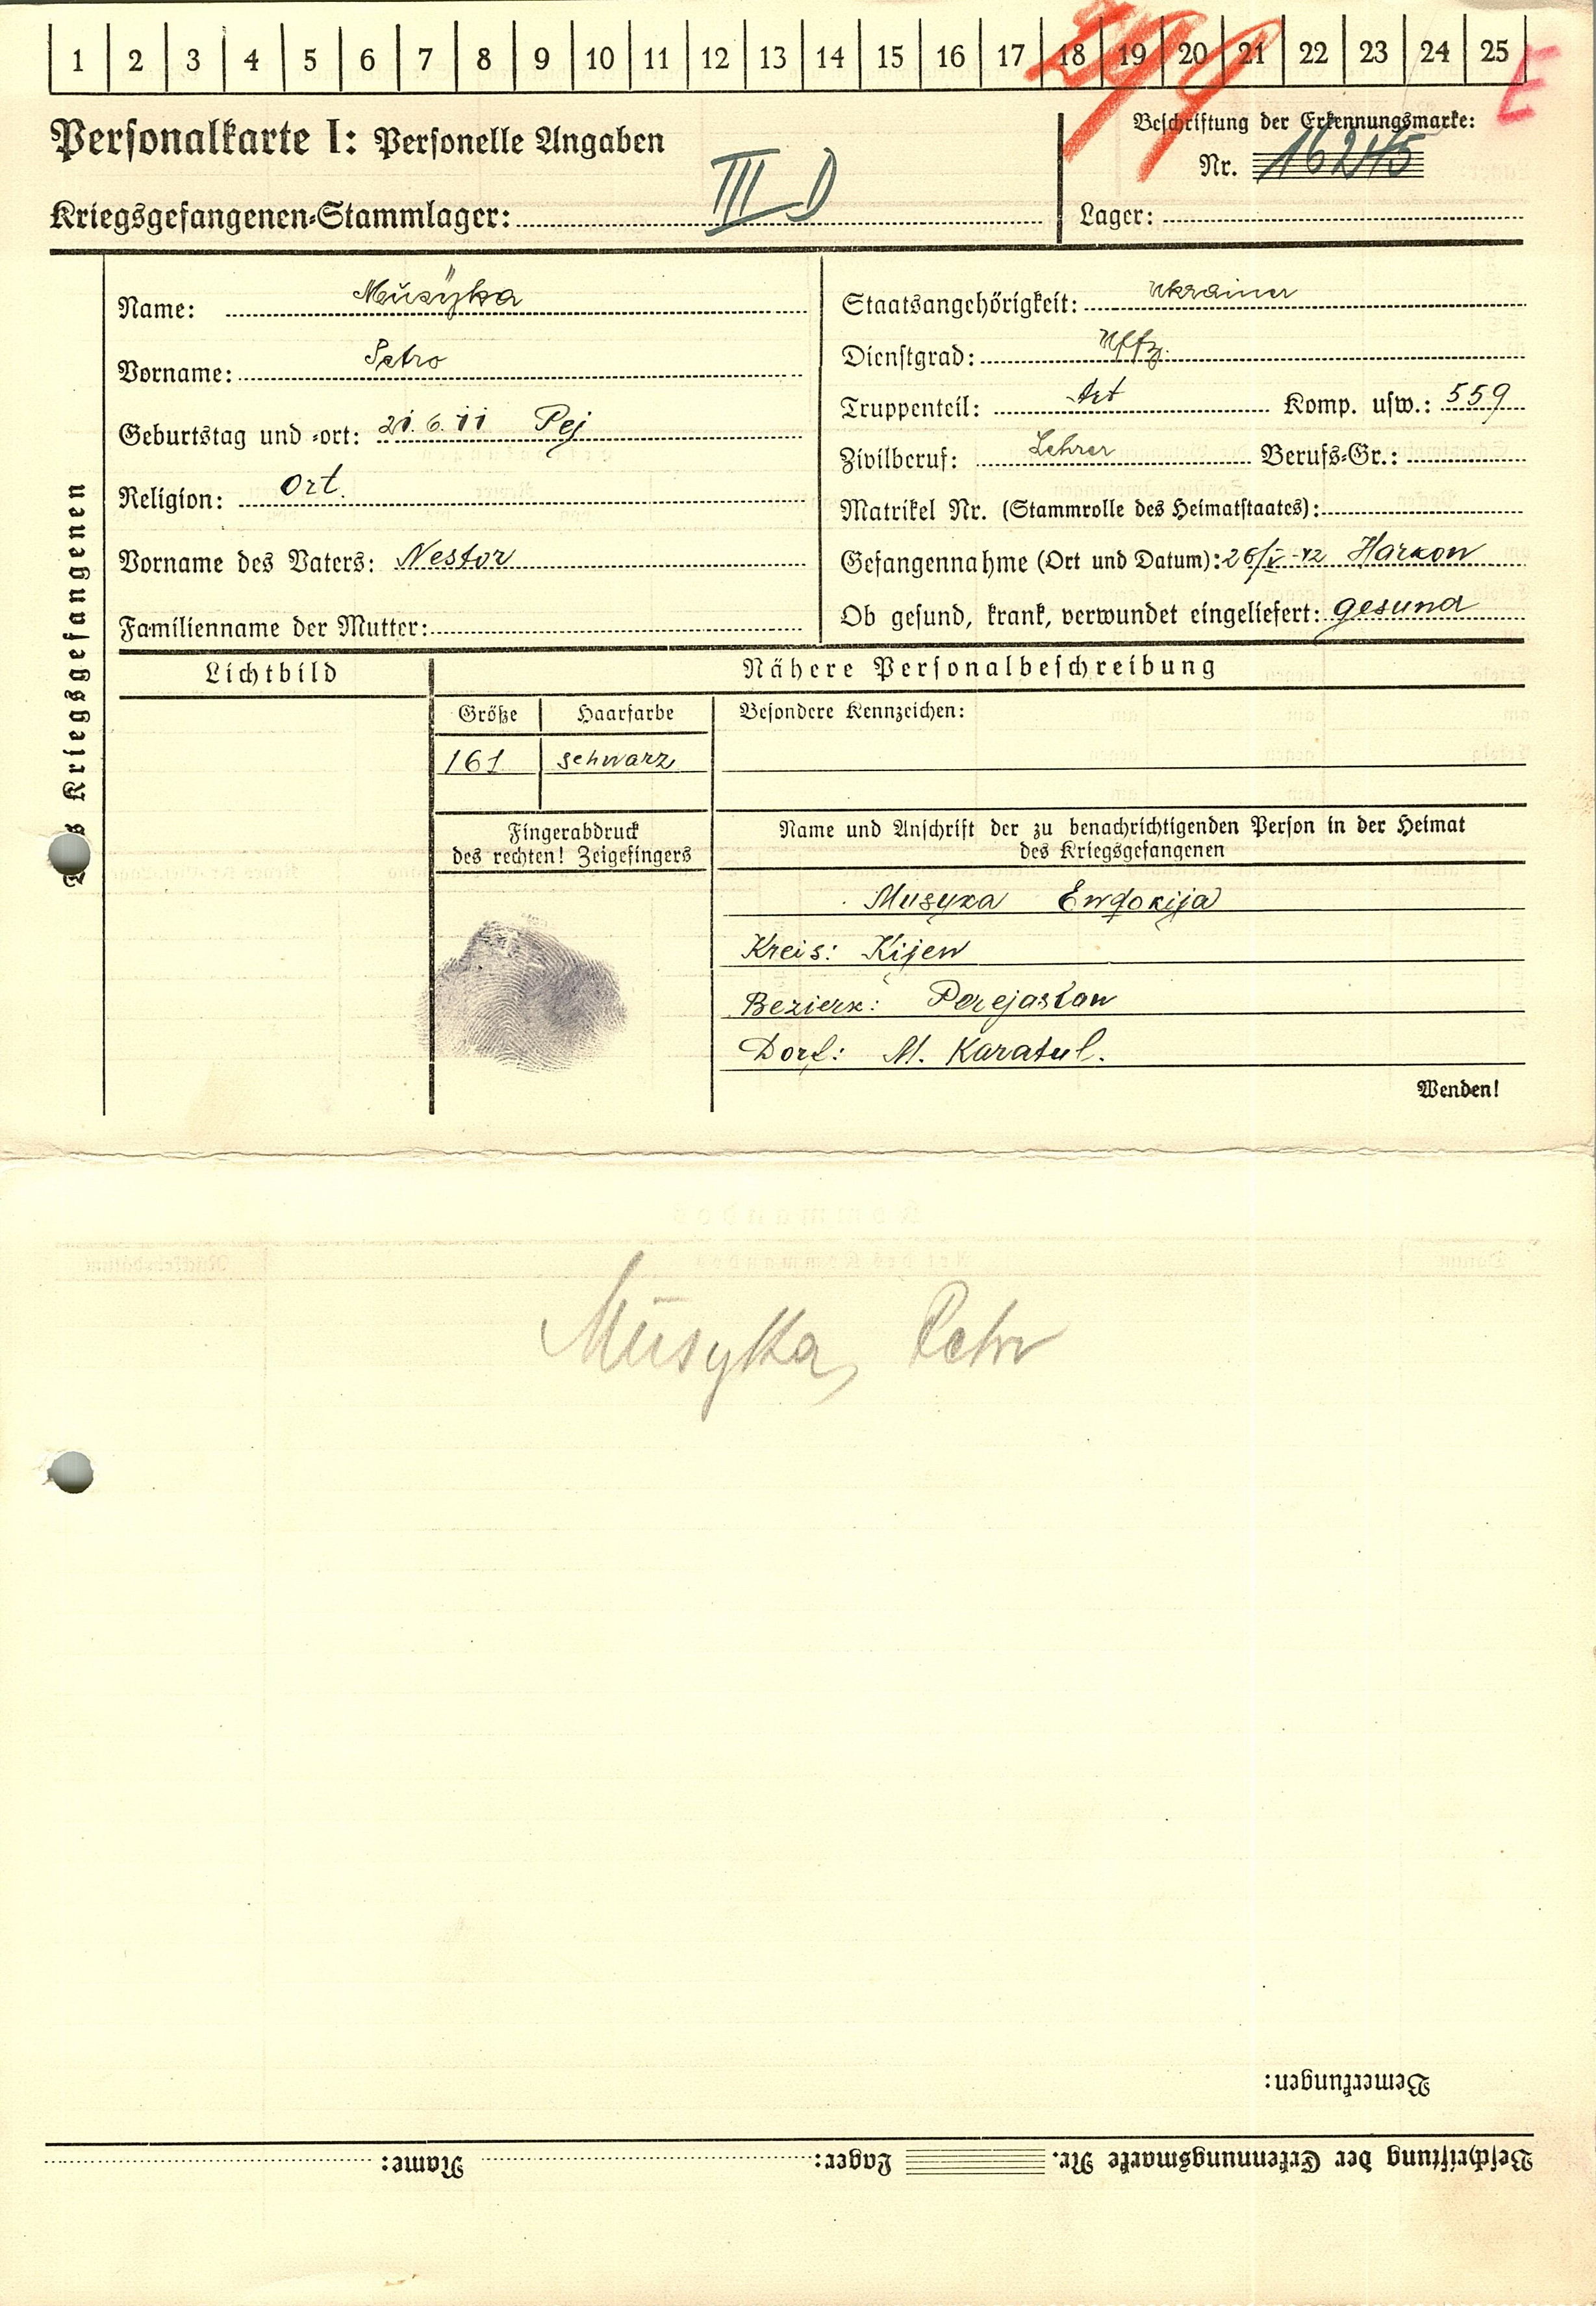 1 2 3 4 5 6 7 8 9 10 11 12 13 14 15 16 17 18 19 20 21 22 23 24 25
E
Personalkarte I: Personelle Angaben
Beschriftung der Erkennungsmarke:
Nr. 16245
Kriegsgefangenen-Stammlager: III D
Lager:
des Kriegsgefangenen
Name: Musyka
Vorname: Petro
Geburtstag und -ort: 21.6.11 Pej
Religion: Ort.
Vorname des Vaters: Nestor
Familienname der Mutter:
Staatsangehörigkeit: Ukrainer
Dienstgrad: Uffz.
Truppenteil: Art Komp. usw.: 559
Zivilberuf: Lehrer Berufs-Gr.:
Matrikel Nr. (Stammrolle des Heimatstaates):
Gefangennahme (Ort und Datum): 26/V-42 Harkow
Ob gesund, krank, verwundet eingeliefert: gesund
Lichtbild
Nähere Personalbeschreibung
Größe Haarfarbe Besondere Kennzeichen:
161 schwarz
Fingerabdruck
des rechten! Zeigefingers
Name und Anschrift der zu benachrichtigenden Person in der Heimat
des Kriegsgefangenen
Musyka Ewdokija
Kreis: Kijew
Bezierk: Perejaslaw
Dorf: M. Karatul.
Wenden!
Musyka, Petro
Bemerkungen:
Beschriftung der Erkennungsmarke Nr. Lager: Name: